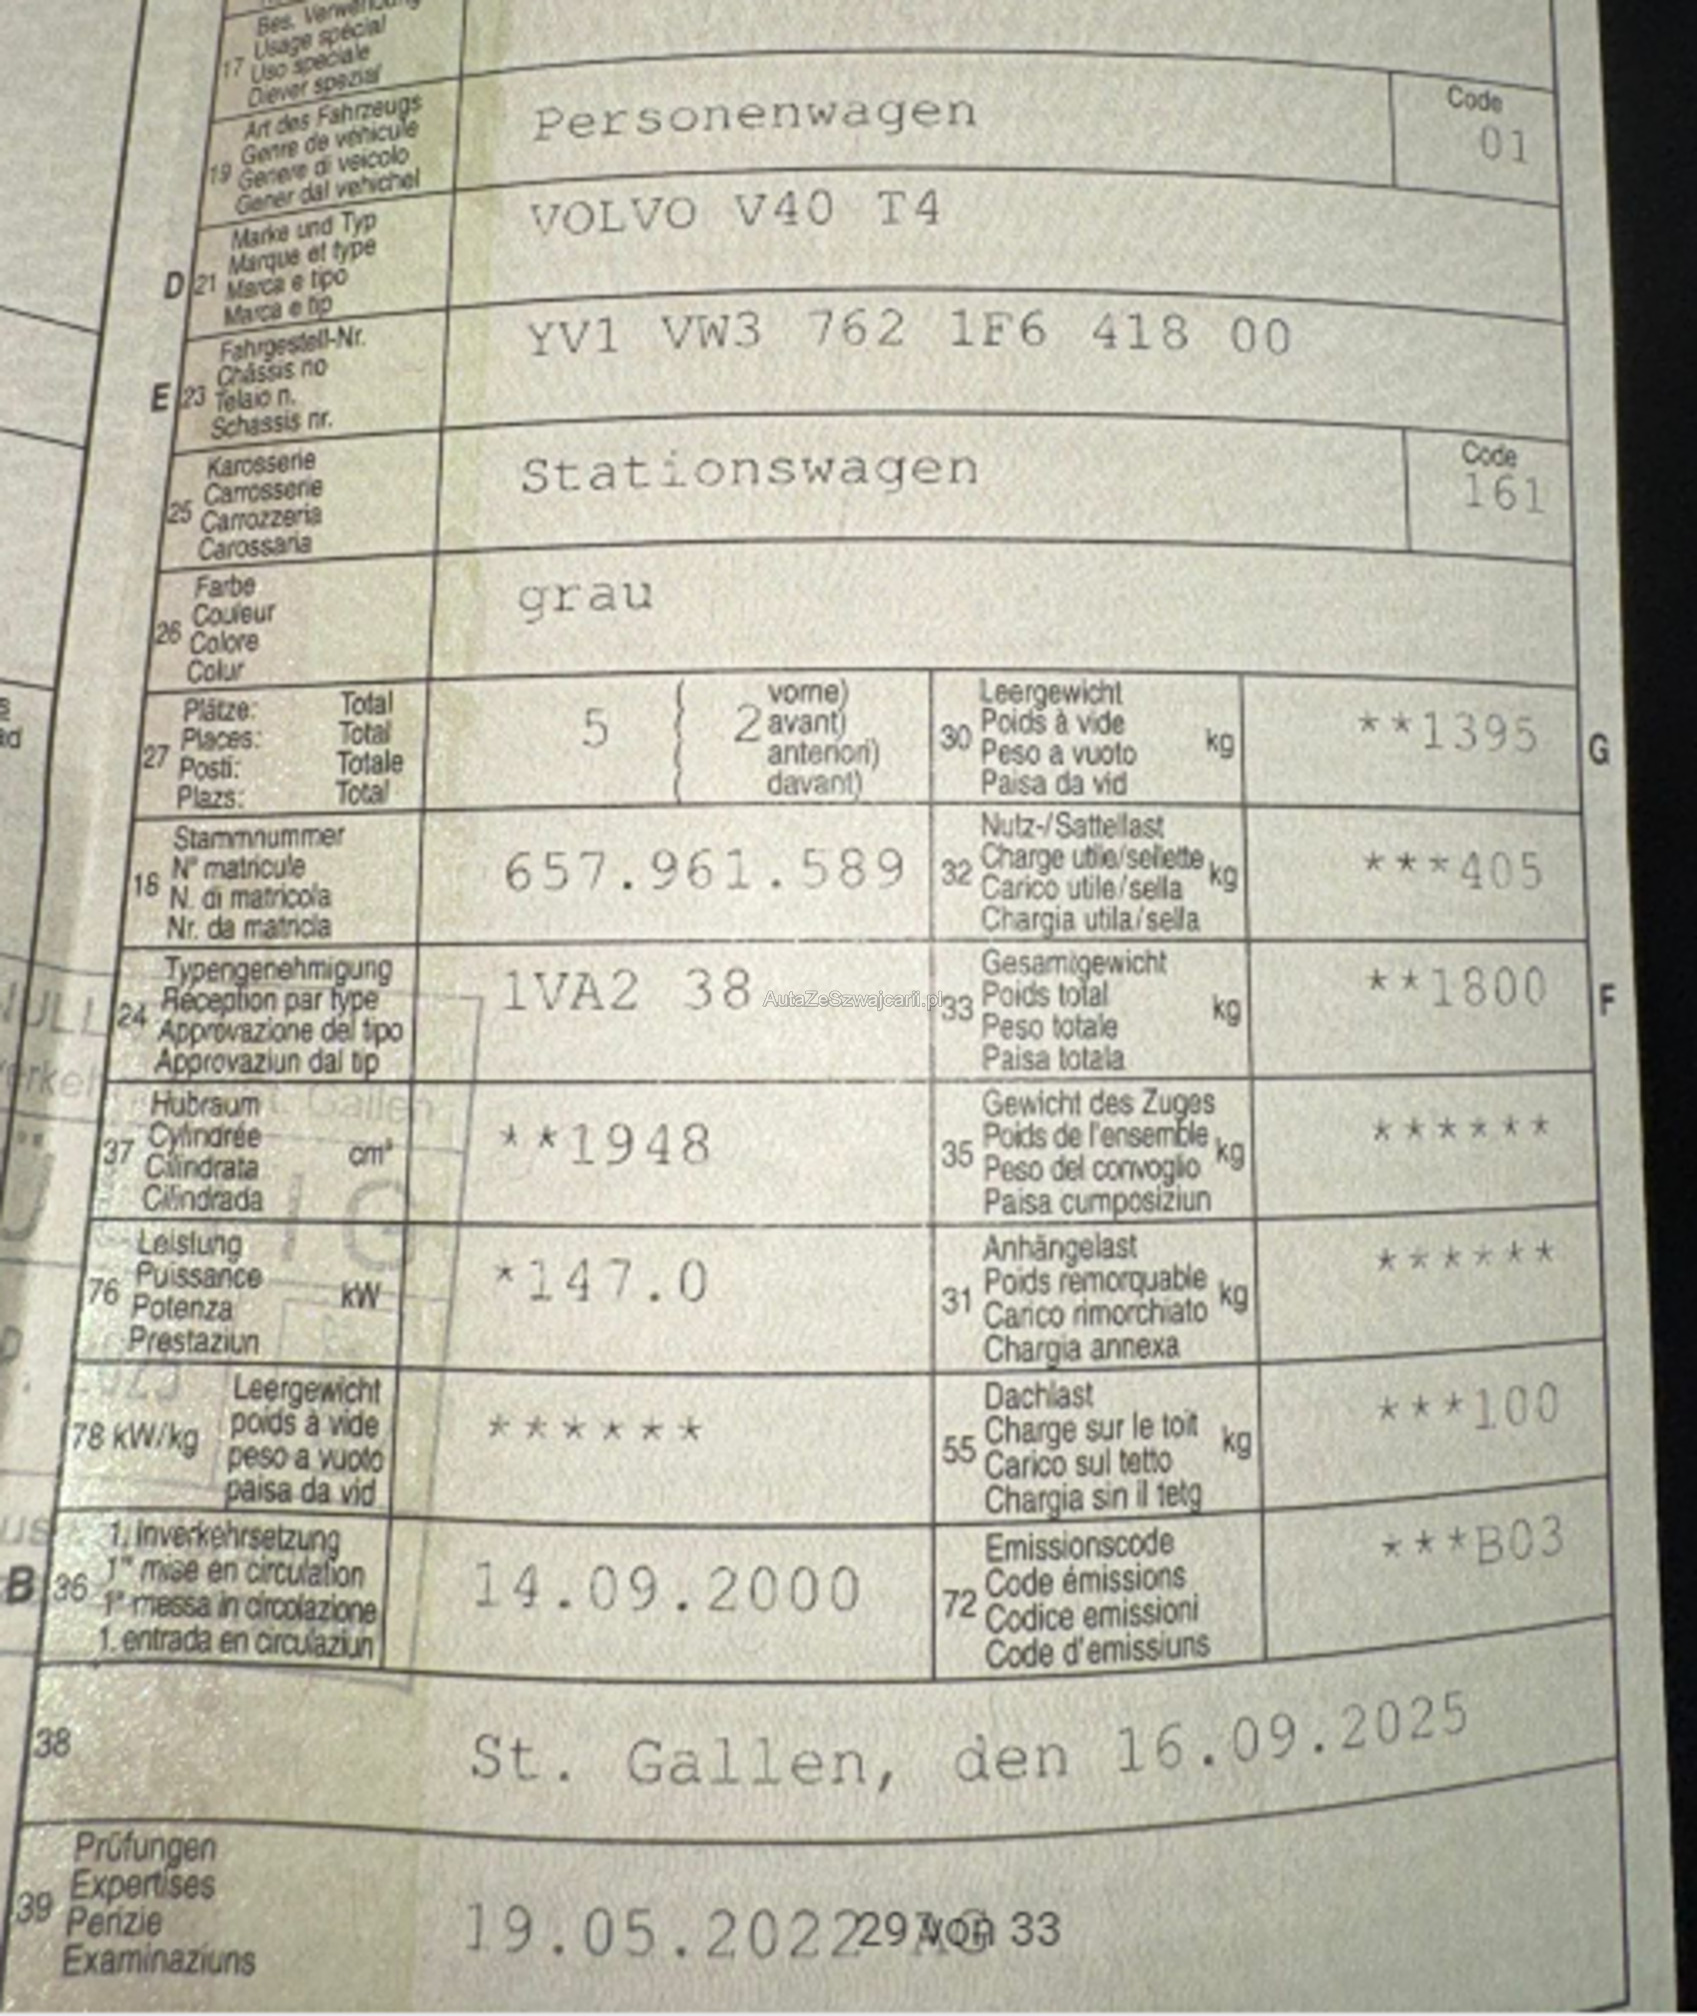 Bes. Verwendung
17 Usage spécial
Uso speciale
Diever spezial
Art des Fahrzeugs
19 Genre de véhicule
Genere di veicolo
Gener dal vehichel
Personenwagen
Code
01
Marke und Typ
D 21 Marque et type
Marca e tipo
Marca e tip
VOLVO V40 T4
Fahrgestell-Nr.
E 23 Châssis no
Telaio n.
Schassis nr.
YV1 VW3 762 1F6 418 00
Karosserie
25 Carrosserie
Carrozzeria
Carossaria
Stationswagen
Code
161
Farbe
26 Couleur
Colore
Colur
grau
Plätze: Total
27 Places: Total
Posti: Totale
Plazs: Total
5 ( 2 vorne)
( avant)
( anteriori)
( davant)
Leergewicht
30 Poids à vide
Peso a vuoto kg
Paisa da vid
**1395 G
Stammnummer
18 N° matricule
N. di matricola
Nr. da matricla
657.961.589
Nutz-/Sattellast
32 Charge utile/sellette kg
Carico utile/sella
Chargia utila/sella
***405
Typengenehmigung
24 Réception par type
Approvazione del tipo
Approvaziun dal tip
1VA2 38
AutaZeSzwajcarii.pl
Gesamtgewicht
33 Poids total kg
Peso totale
Paisa totala
**1800 F
Hubraum
37 Cylindrée cm³
Cilindrata
Cilindrada
**1948
Gewicht des Zuges
35 Poids de l'ensemble kg
Peso del convoglio
Paisa cumposiziun
******
Leistung
76 Puissance kW
Potenza
Prestaziun
*147.0
Anhängelast
31 Poids remorquable kg
Carico rimorchiato
Chargia annexa
******
78 kW/kg Leergewicht
poids à vide
peso a vuoto
paisa da vid
******
Dachlast
55 Charge sur le toit kg
Carico sul tetto
Chargia sin il tetg
***100
1. Inverkehrsetzung
B 36 1re mise en circulation
1a messa in circolazione
1. entrada en circulaziun
14.09.2000
Emissionscode
72 Code émissions
Codice emissioni
Code d'emissiuns
***B03
38
St. Gallen, den 16.09.2025
Prüfungen
39 Expertises
Perizie
Examinaziuns
19.05.2022 AG
29 von 33